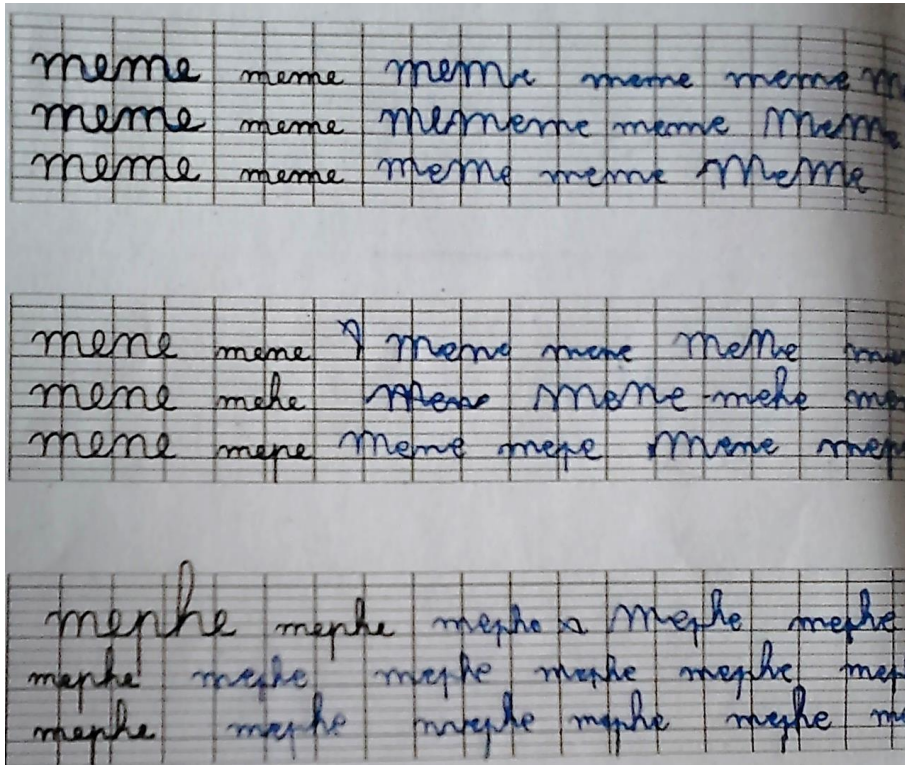 meme meme meme meme meme m
meme meme mememe meme meme
meme meme meme meme Meme
mene mene mene mene mene
mene mehe mene mene mehe me
mene mepe meme mepe mene mep
mephe mephe mephe mephe mephe
mephe mephe mephe mephe mephe mep
mephe mephe mephe mephe mephe m